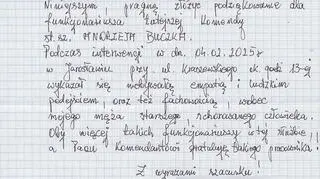 Niniejszym, pragnę złożyć podziękowanie dla
funkcjonariusza tutejszej Komendy
st. sż. ANDRZEJA BUCZKA.
Podczas interwencji w dn. 04.02.2025r
w Jarosławiu przy ul. Kraszewskiego ok. godz 13-ej
wykazał się niebywałą empatią i ludzkim
podejściem, oraz też fachowością, wobec
mojego męża starszego schorowanego człowieka.
Oby więcej takich funkcjonariuszy w tej służbie!!
a Panu Komendantowi gratuluję takiego pracownika!
Z wyrazami szacunku!